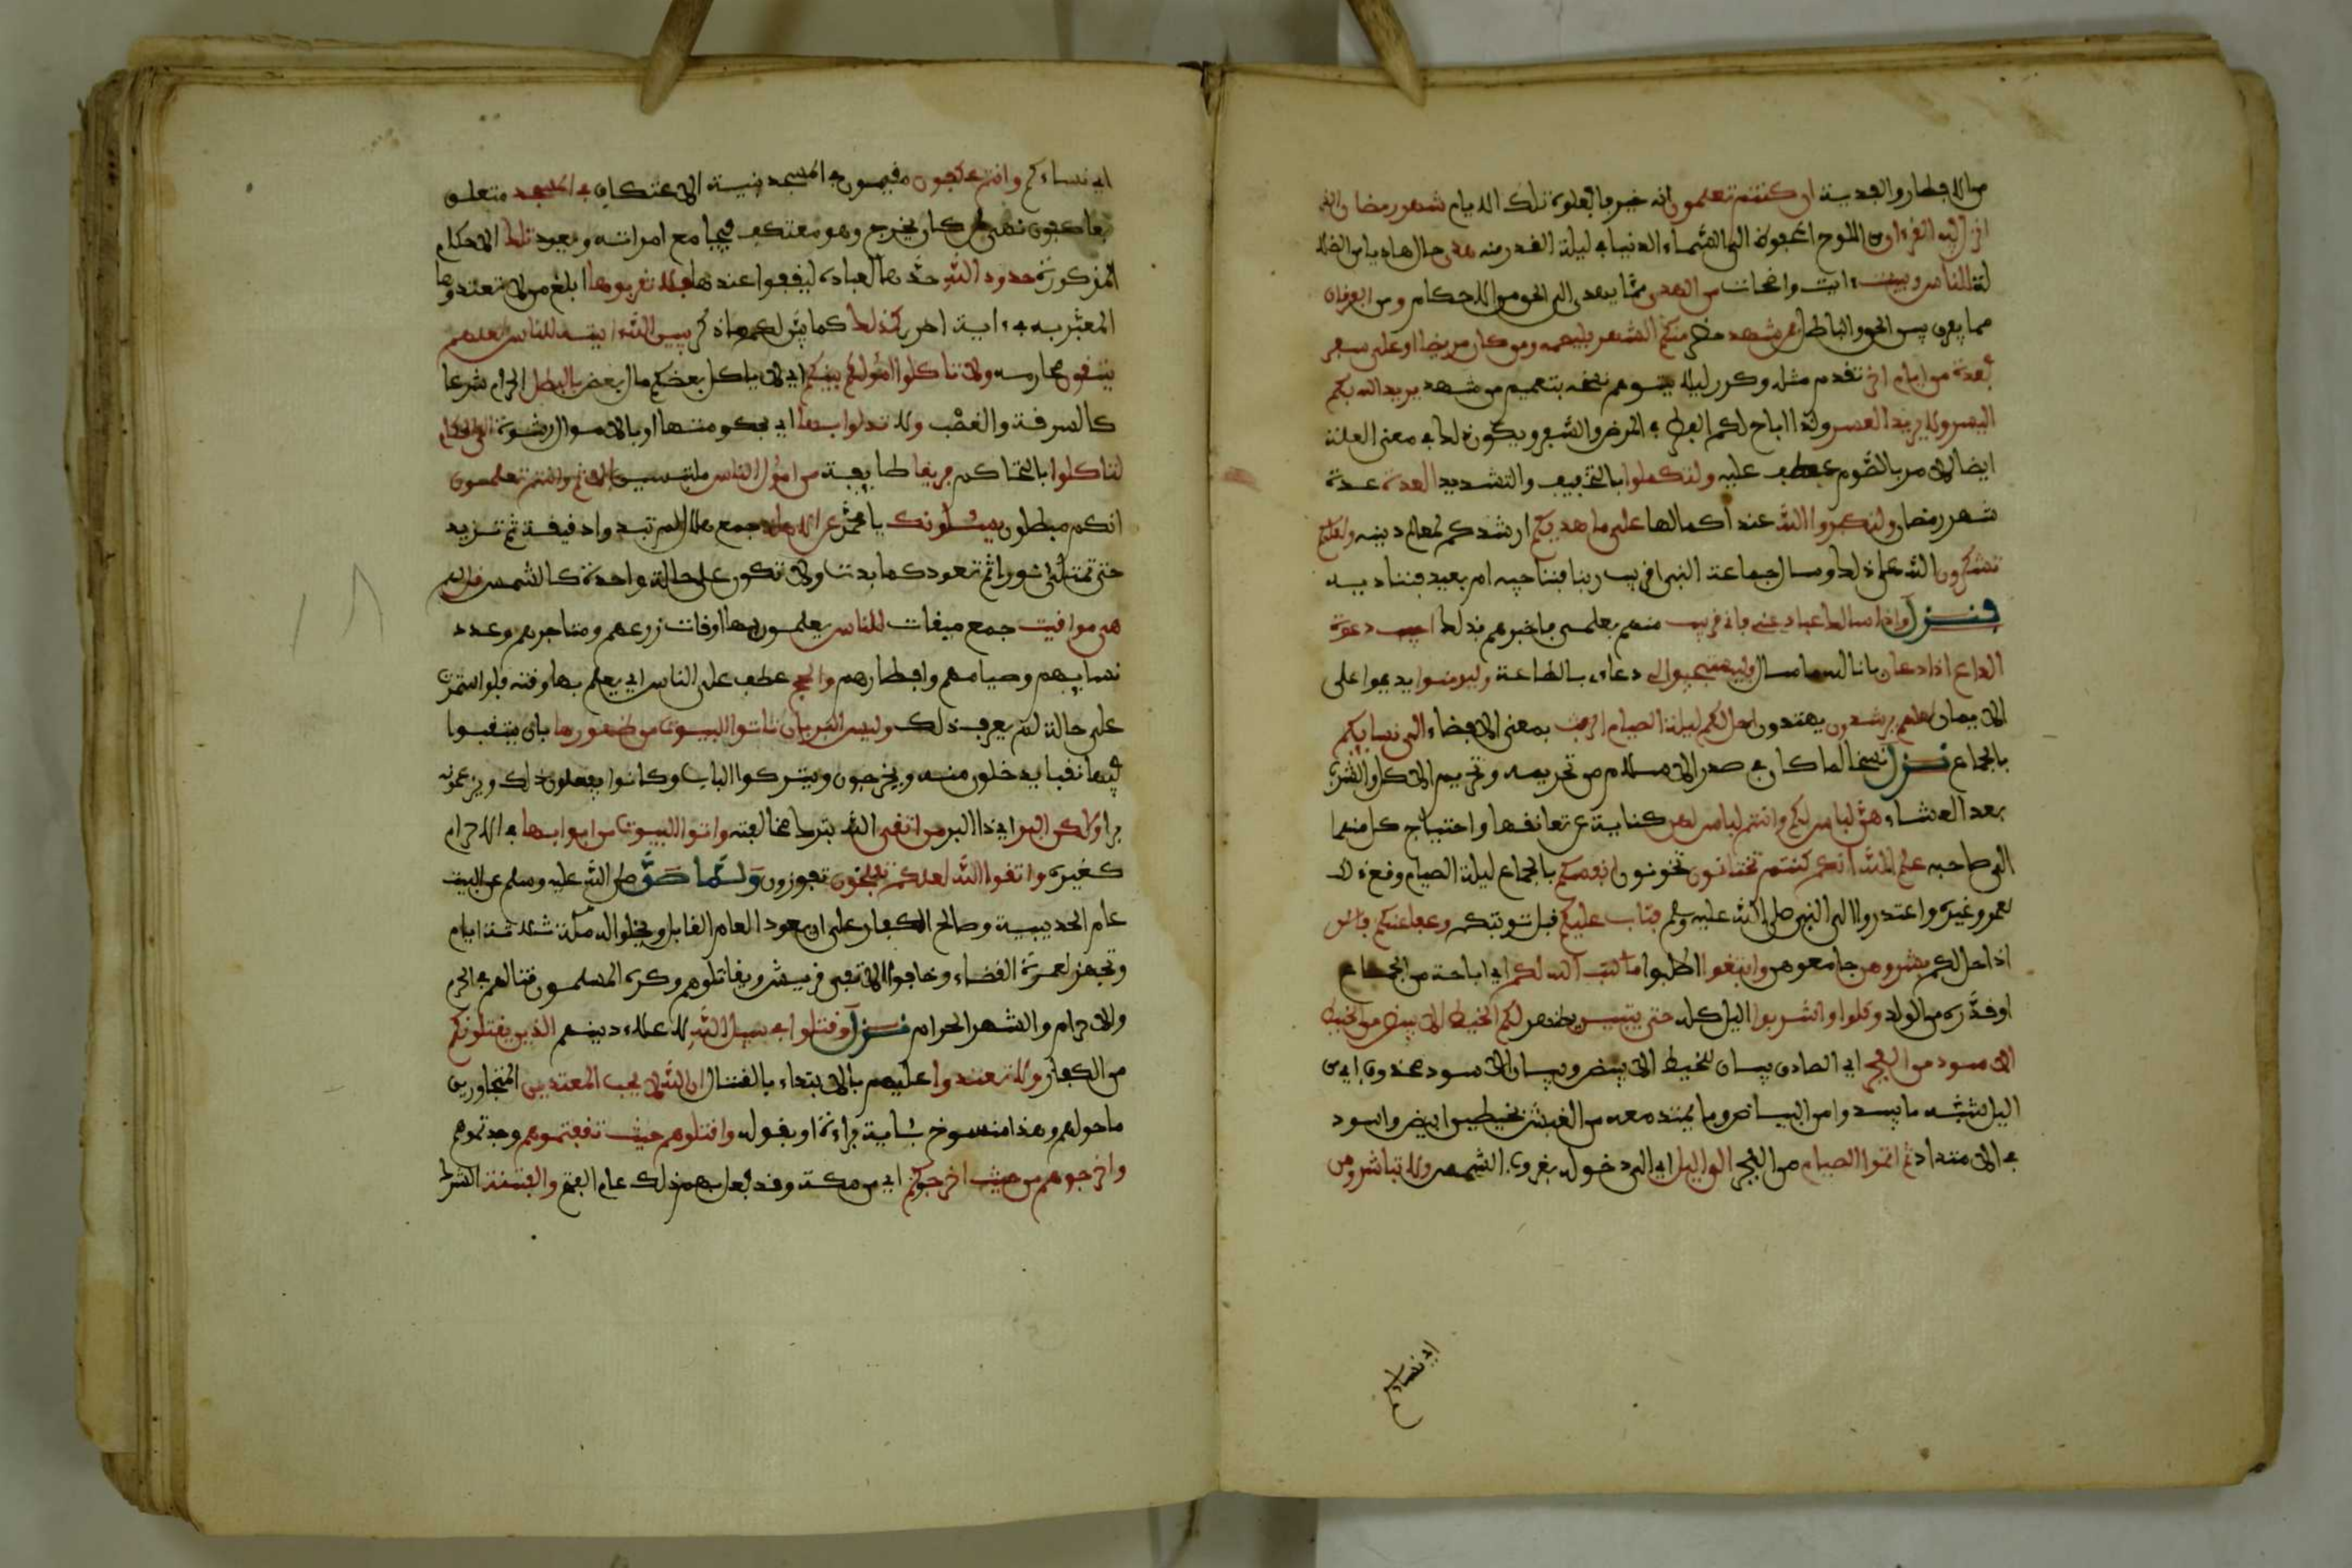 من الافطار والفدية ان كنتم تعلمون انه خير فافعلوه تلك الايام شهر رمضان الذي
انزل فيه القرءان من اللوح المحفوظ الى السماء الدنيا في ليلة القدر منه هدى حال هاديا من الضلا
لة للناس وبينت ءايت واضحات من الهدى مما يهدي الى الحق من الاحكام ومن الفرقان
مما يفرق بين الحق والباطل فمن شهد حضر منكم الشهر فليصمه ومن كان مريضا او على سفر
فعدة من ايام اخر تقدم مثله وكرر ليلا يتوهم نسخه بتعميم من شهد يريد الله بكم
اليسر ولا يريد العسر ولذا اباح لكم الفطر في المرض والسفر ويكون ذلك في معنى العلة
ايضا للامر بالصوم عطف عليه ولتكملوا بالتخفيف والتشديد العدة عدة
شهر رمضان ولتكبروا الله عند اكمالها على ما هديكم ارشدكم لمعالم دينه ولعلكم
تشكرون الله على ذلك وسال جماعة النبي اقريب ربنا فنناجيه ام بعيد فنناديه
فنزل واذا سالك عبادي عني فاني قريب منهم بعلمي فاخبرهم بذلك اجيب دعوة
الداع اذا دعان بانالته ما سال فليستجيبوا لي دعاءي بالطاعة وليومنوا يديموا على
الايمان لعلهم يرشدون يهتدون احل لكم ليلة الصيام الرفث بمعنى الافضاء الى نسايكم
بالجماع نزل نسخا لما كان في صدر الاسلام من تحريمه وتحريم الاكل والشرب
بعد العشاء هن لباس لكم وانتم لباس لهن كناية عن تعانقهما واحتياج كل منهما
الى صاحبه علم الله انكم كنتم تختانون تخونون انفسكم بالجماع ليلة الصيام وقع ذلك
لعمر وغيره واعتذروا الى النبي صلى الله عليه وسلم فتاب عليكم قبل توبتكم وعفا عنكم فالئن
اذا حل لكم بشروهن جامعوهن وابتغوا اطلبوا ما كتب الله لكم اي اباحه من الجماع
او قدره من الولد وكلوا واشربوا اليل كله حتى يتبين يظهر لكم الخيط الابيض من الخيط
الاسود من الفجر اي الصادق بيان للخيط الابيض وبيان الاسود محذوف اي من
اليل شبه ما يبدوا من البياض وما يمتد معه من الغبش بخيطين ابيض واسود
في الامتداد ثم اتموا الصيام من الفجر الى اليل اي الى دخوله بغروب الشمس ولا تباشروهن
اي نساءكم
اي نساءكم وانتم عكفون مقيمون في المسجد بنية الاعتكاف في المسجد متعلق
بعاكفون نهي لمن كان يخرج وهو معتكف فيجامع امراته ويعود تلك الاحكام
المذكورة حدود الله حدها لعباده ليقفوا عندها فلا تقربوها ابلغ من لا تعتدوها
المعبر به في ءاية اخرى كذلك كما بين لكم ما ذكر يبين الله ءايته للناس لعلهم
يتقون محارمه ولا تاكلوا امولكم بينكم اي لا ياكل بعضكم مال بعض بالبطل الحرام شرعا
كالسرقة والغصب ولا تدلوا بها اي بحكومتها او بالاموال رشوة الى الحكام
لتاكلوا بالتحاكم فريقا طايفة من امول الناس ملتبسين بالاثم وانتم تعلمون
انكم مبطلون يسئلونك يا محمد عن الاهلة جمع هلال لم تبدوا دقيقة ثم تزيد
حتى تمتلئ نورا ثم تعود كما بدت ولا تكون على حالة واحدة كالشمس قل لهم
هي موقيت جمع ميقات للناس يعلمون بها اوقات زرعهم ومتاجرهم وعدد
نسايهم وصيامهم وافطارهم والحج عطف على الناس اي يعلم بها وقته فلو استمرت
على حالة لم يعرف ذلك وليس البر بان تاتوا البيوت من ظهورها بان ينقبوا
فيها نقبا يدخلون منه ويخرجون ويتركوا الباب وكانوا يفعلون ذلك ويزعمونه
برا ولكن البر اي ذا البر من اتقى الله بترك مخالفته واتوا البيوت من ابوابها في الاحرام
كغيره واتقوا الله لعلكم تفلحون تفوزون ولما صد صلى الله عليه وسلم عن البيت
عام الحديبية وصالح الكفار على ان يعود العام القابل ويخلوا له مكة ثلاثة ايام
وتجهز لعمرة القضاء وخافوا الا تفي قريش ويقاتلوهم وكره المسلمون قتالهم في الحرم
والاحرام والشهر الحرام نزل وقتلوا في سبيل الله لاعلاء دينه الذين يقتلونكم
من الكفار ولا تعتدوا عليهم بالابتداء بالقتال ان الله لا يحب المعتدين المتجاوزين
ما حد لهم وهذا منسوخ بئاية براءة او بقوله واقتلوهم حيث ثقفتموهم وجدتموهم
واخرجوهم من حيث اخرجوكم اي من مكة وقد فعل بهم ذلك عام الفتح والفتنة الشرك